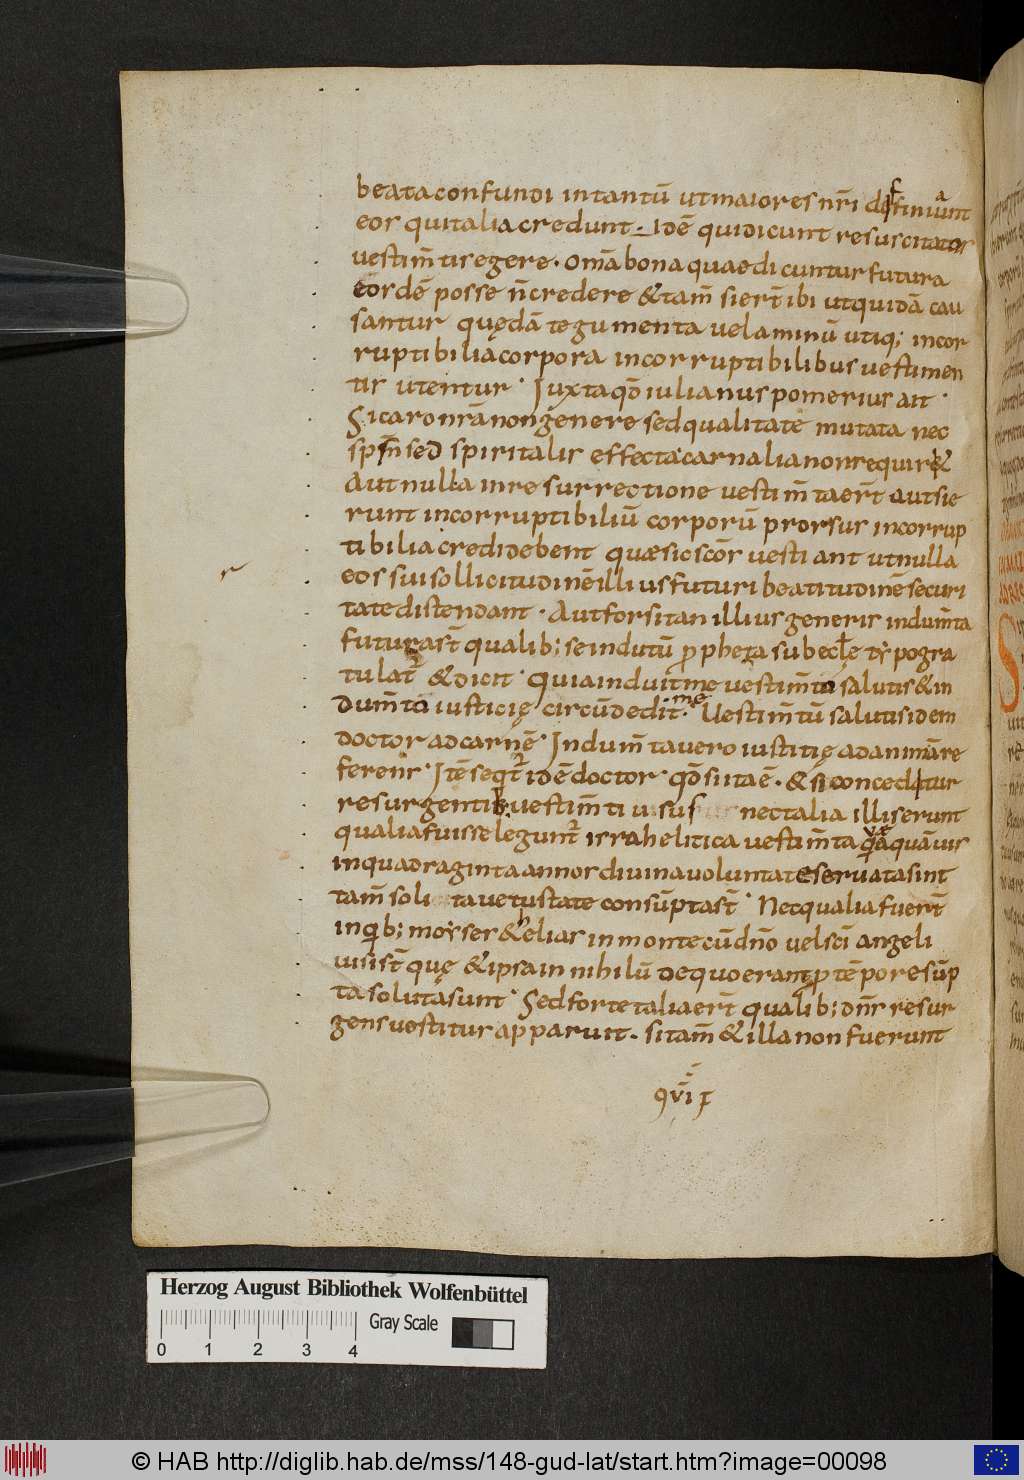 beata confundi in tantū ut maiores nr̄i desfiniuant
eos qui talia credunt. Idē qui dicunt resuscitatos
vestim̄tis egere. Om̄a bona quae dicuntur futura
eordē posse n̄ credere & tam̄ si er̄t ibi ut quidā cau
santur quędā tegumenta uelaminū utiq; incor
ruptibilia corpora incorruptibilibus uestimen
tis utentur. Juxta qd̄ iulianus pomerius ait.
Si caro nr̄a non genere sed qualitate mutata nec
sp̄m sed spiritalis effecta carnalia non requir&
Aut nulla in resurrectione uestim̄ta er̄t aut si e
runt incorruptibiliū corporū prorsus incorrup
tibilia credi debent quae sic sc̄or uestiant ut nulla
eos sui sollicitudinē illius futuri beatitudinē securi
tate distendant. Aut forsitan illius generis indum̄ta
futura st̄ qualib; se indutū propheta sub eccl̄e typo gra
tulat̄ & dicit. Quia induit me uestim̄to salutis & in
dum̄to iusticię circūdedit me. Uestim̄tū salutis idem
doctor ad carnē. Indum̄ta uero iustitię ad animā re
ferent̄. Itē seqt̄ idē doctor. qd̄ si ita ē. & si concedatur
resurgentib; uestim̄ti usus nec talia illis erunt
qualia fuisse legunt̄ israhelitica uestim̄ta quae quāuis
in quadraginta annos diuina uoluntate seruata sint
tam̄ soli ta uetustate consūpta st̄. Nec qualia fuer̄t
in qib; moyses & elias in monte cū dn̄o uel sc̄i angeli
uisi st̄ quę & ipsa in nihilū de quo erant pro tēpore sūp
ta soluta sunt. Sed forte talia er̄t qualib; dn̄s resur
gens uestitur apparuit. si tam̄ & illa non fuerunt
Herzog August Bibliothek Wolfenbüttel
Gray Scale
0 1 2 3 4
© HAB http://diglib.hab.de/mss/148-gud-lat/start.htm?image=00098